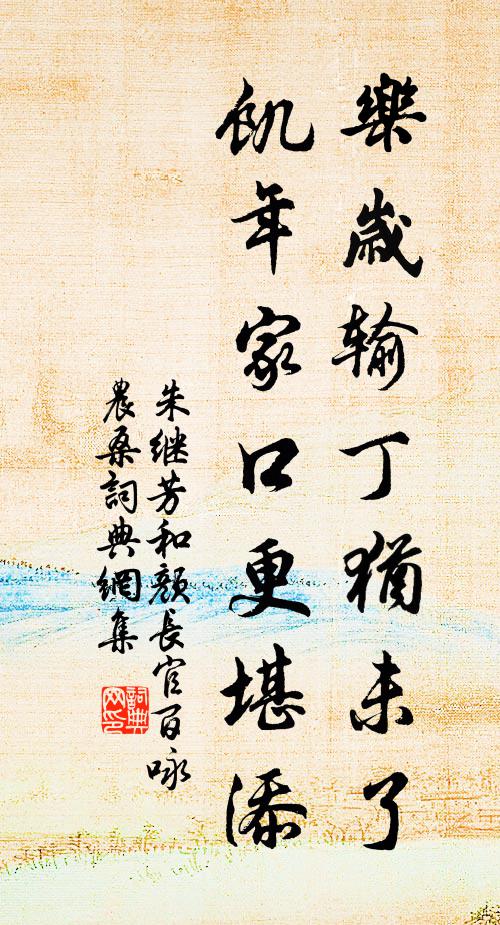 樂歲输丁猶未了
飢年家口更堪添
朱继芳和顏長官百咏
農桑詞典網集
詞典
网印